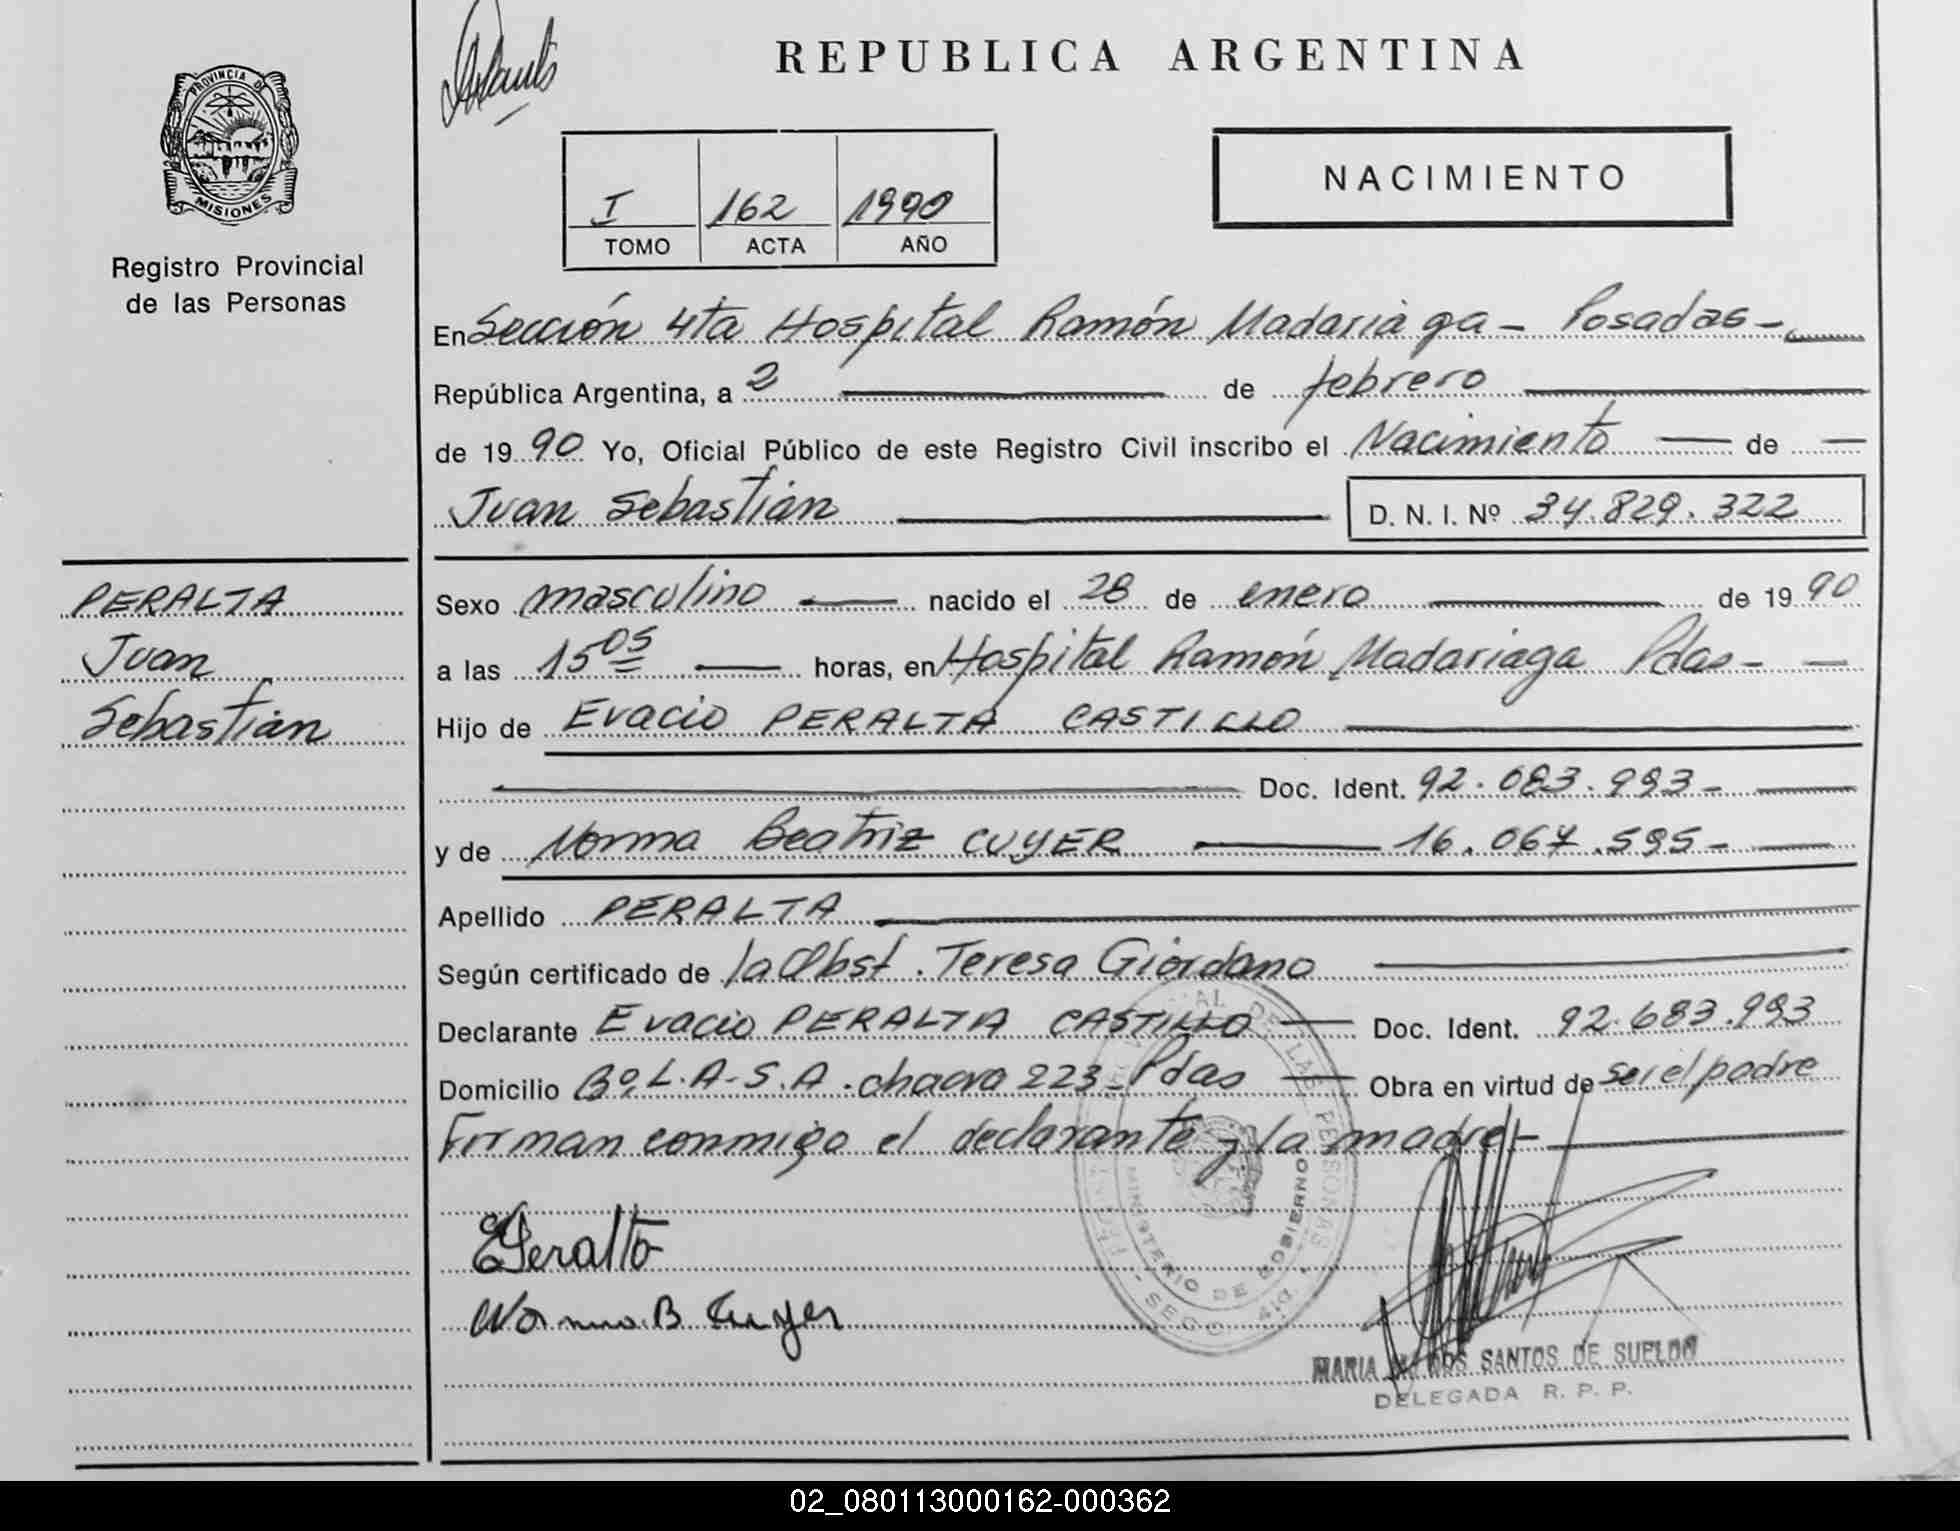 REPUBLICA ARGENTINA
PROVINCIA DE
MISIONES
Registro Provincial
de las Personas
I 162 1990
TOMO ACTA AÑO
NACIMIENTO
En Sección 4ta Hospital Ramón Madariaga - Posadas -
República Argentina, a 2 de febrero
de 1990 Yo, Oficial Público de este Registro Civil inscribo el Nacimiento de
Juan Sebastián D. N. I. Nº 34.829.322
PERALTA
Juan
Sebastián
Sexo masculino nacido el 28 de enero de 1990
a las 15 05 horas, en Hospital Ramón Madariaga Pdas-
Hijo de Evacio PERALTA CASTILLO
Doc. Ident. 92.683.993-
y de Norma Beatriz CUYER 16.067.595-
Apellido PERALTA
Según certificado de la Obst. Teresa Giordano
Declarante Evacio PERALTA CASTILLO Doc. Ident. 92.683.993
Domicilio Bº L.A-S.A. chacra 223-Pdas Obra en virtud de ser el padre
Firman conmigo el declarante y la madre-
EPeralta
Norma B Cuyer
DE LAS PERSONAS
MINISTERIO DE GOBIERNO
MARIA DOS SANTOS DE SUELDO
DELEGADA R. P. P.
02_080113000162-000362